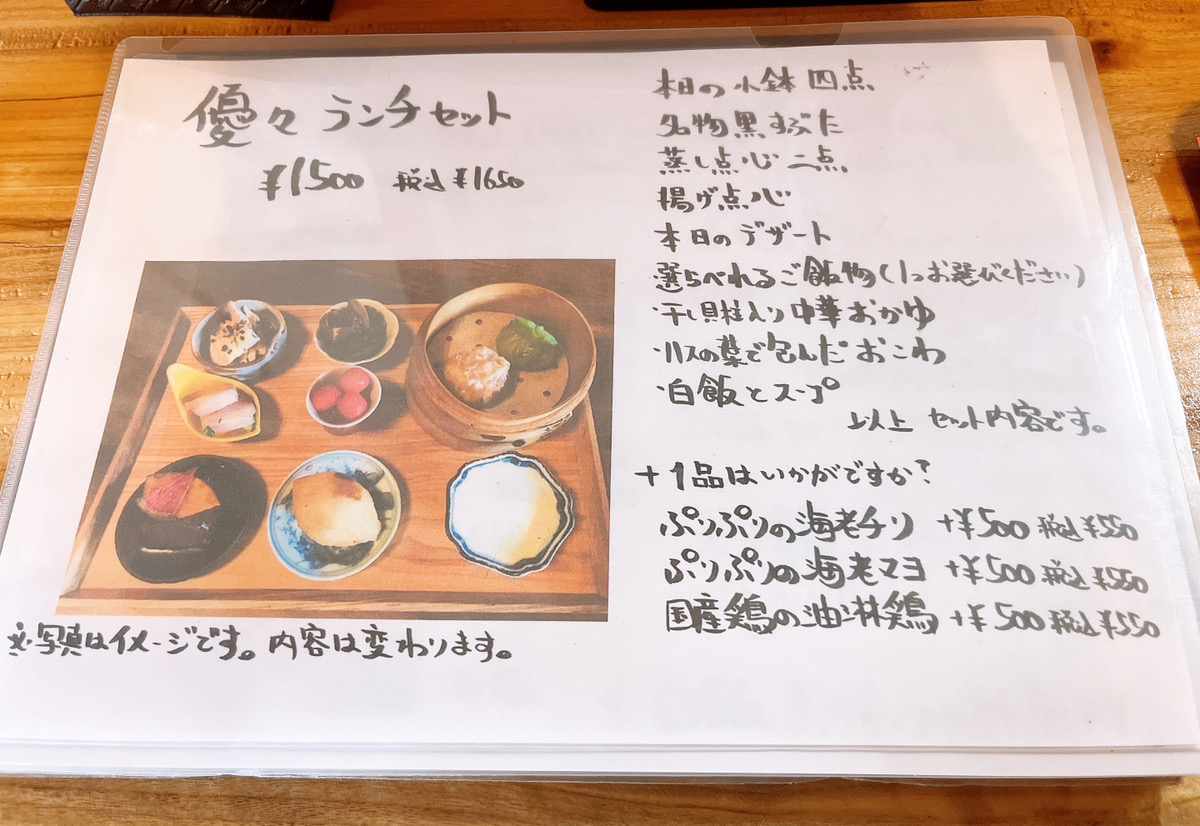 優々 ランチセット
¥1500 税込 ¥1650
※写真はイメージです。内容は変わります。
本日の小鉢 四点
名物黒すぶた
蒸し点心 二点
揚げ点心
本日のデザート
選らべれるご飯物(1つお選びください)
・干し貝柱入り中華おかゆ
・ハスの葉で包んだおこわ
・白飯とスープ
以上 セット内容です。
+1品はいかがですか?
ぷりぷりの海老チリ +¥500 税込¥550
ぷりぷりの海老マヨ +¥500 税込¥550
国産鶏の油淋鶏 +¥500 税込¥550